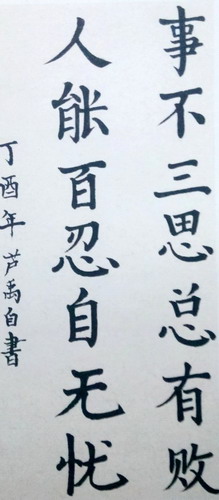 事不三思总有败
人能百忍自无忧
丁酉年芦禹自書